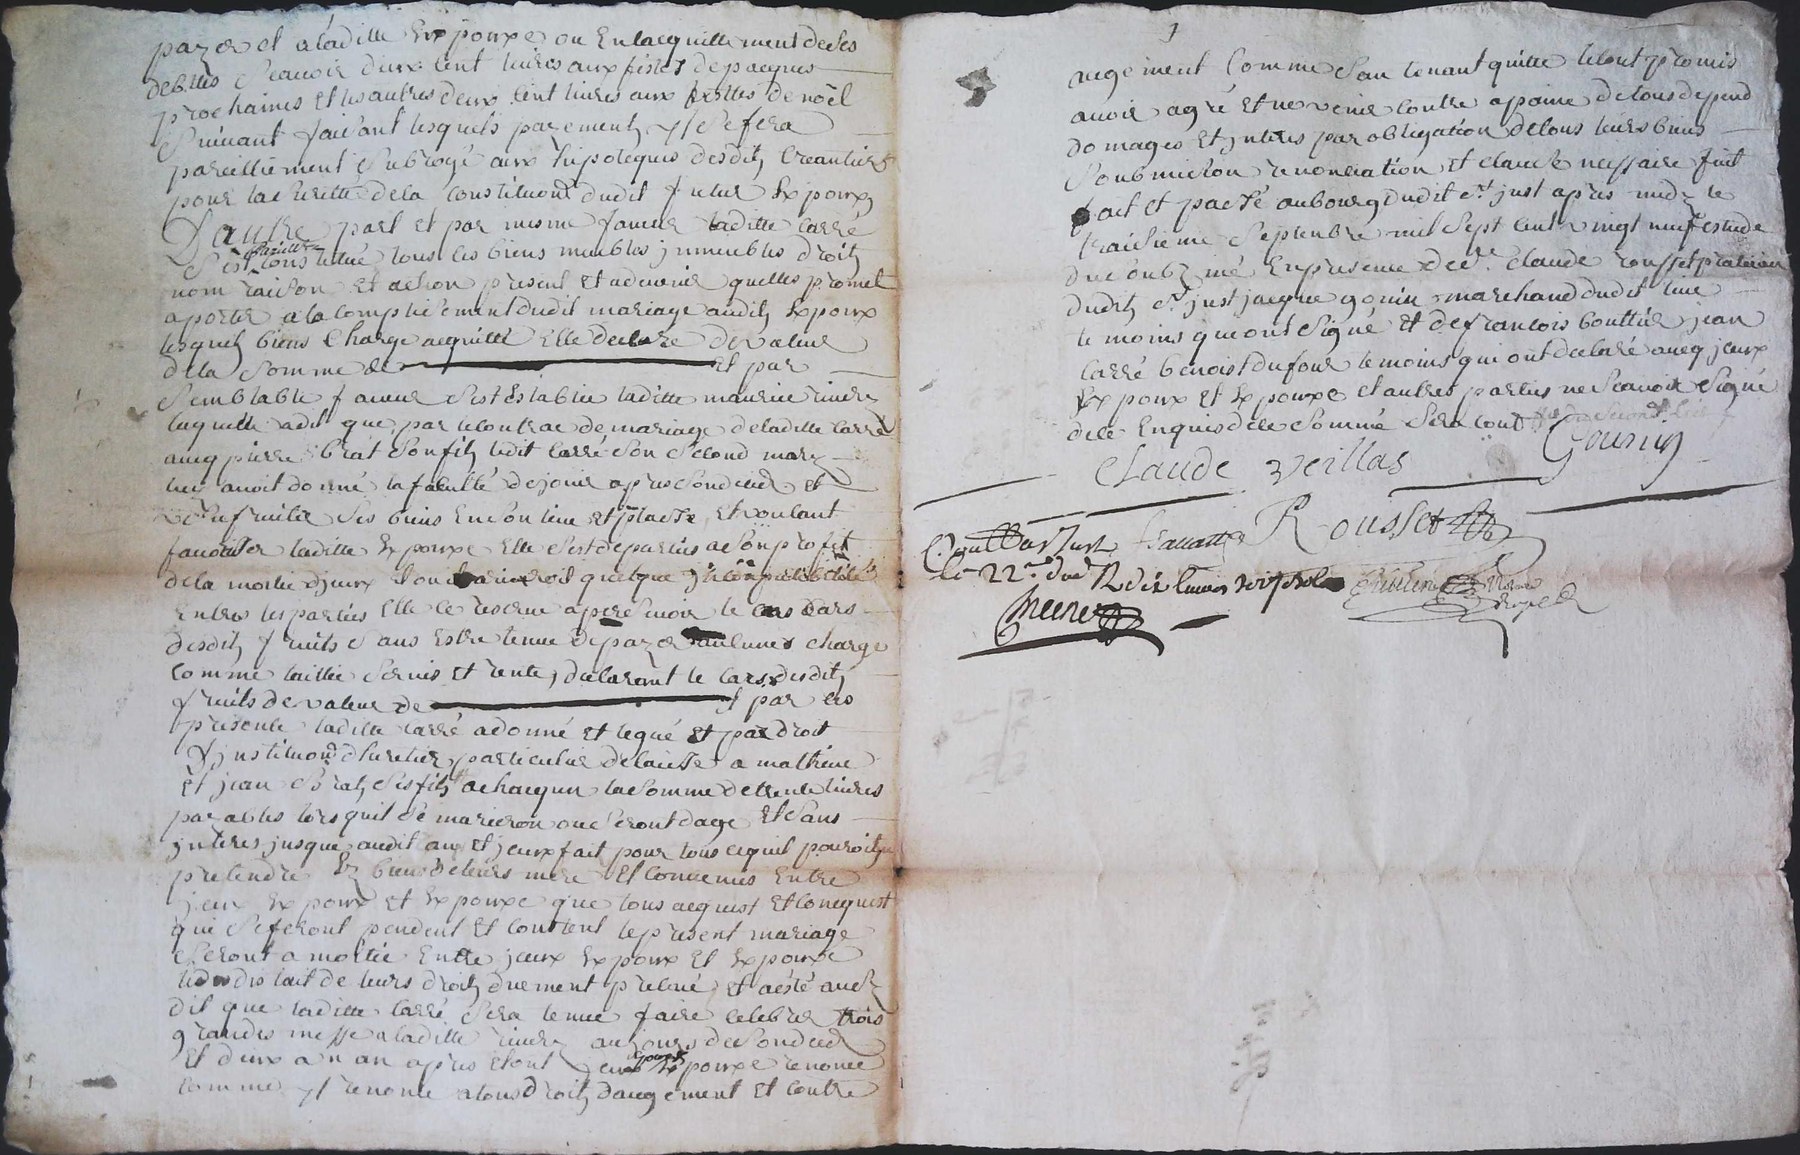 payer et a laditte Expouxe ou En lacquittement de ses
debttes Scauoir deux cent liures aux festes de pacques
prochaines et les autres deux cent liures aux festtes de noël
Suiuant faisant lesquels payements yl Sefera
pareillement Subrogé aux hipoteques desdits Creantiers
pour la Surette de la Constituõn dudit futur Expoux
Dautre part et par mesme faueur laditte Carré
Sest constitué tous ses biens meubles jmmeubles droits
nom raison et action present et aduenir quelles promet
aporter a la complissement dudit mariage audit Expoux
lesquels biens Charge acquittés Elle declare de valeur
de la Somme de et par
Semblable faueur Sest establie laditte maurice riuier
laquelle a dit que par le contrac de mariage de laditte Carré
aueq pierre brat Son fils ledit Carré Son Second mary
luy auoit donné la faculté de jouir apres Son deced et
usufruiter Ses biens En Son lieu et plasse, Et voulant
fauoriser laditte Expouxe Elle Sest departies a Son profit
de la moitié djceux Et ou jl ariueroit quelque jncompatibilité
Entre les parties Elle Ce reserue apres moir le cars
desdits fruits Sans Estre tenue de payer aulcunes charge
Comme taillie Seruis et rente, declarent le cars desdits
fruits de valeur de Et par ces
presente laditte Carré a donné et legué et par droit
djnstituõn dheritier particulier delaissé a mathieu
et jean brat Ses fils a chacqun la Somme de trente liures
payables lors quil Se marieron ou Seront dage Et Sans
jnteres jusque audit an et jceux fait pour tous ce quil pouroit
pretendre Ez biens de leurs mere Et Conuenus Entre
jceux Expoux et Expouxe que tous acquest et Concquest
qui Se feront pendent et Constent le present mariage
Seront a moitié Entre jceux Expoux et Expouxe
de leurs droits duement preleué, Et a esté aussy
dit que laditte Carré Sera tenue faire celebrer trois
grandes messe a laditte riuier au jours de Son deced
Et deux a n an apres Etont jceux Expouxe renoncé
Comme yl renonce a tous droits daugement et Contre
augement Comme San tenant quitte le tout promis
auoir agré et ne venir contre a paine de tous depend
domages et jnteres par obligation de tous leurs biens
Soubmission renonciation et clause nessaire fait
fait et passé au bourg dudit St just apres midy le
traisieme Septenbre mil Sept cent vingt neuf estude
du Soubzné En presence de Sr. Claude rousset praticien
dudit St just jacque gonin marchand dudit lieu
temoins qui ont Signé et de francois bouttier jean
Carré benoist dufour temoins qui ont declaré aueq jceux
Expoux et Expouxe et autres parties ne Scauoir Signé
de ce Enquis de ce Sommé Sera controllé
Claude veillas Gounin
Rousset
le 22e dud R dix liures